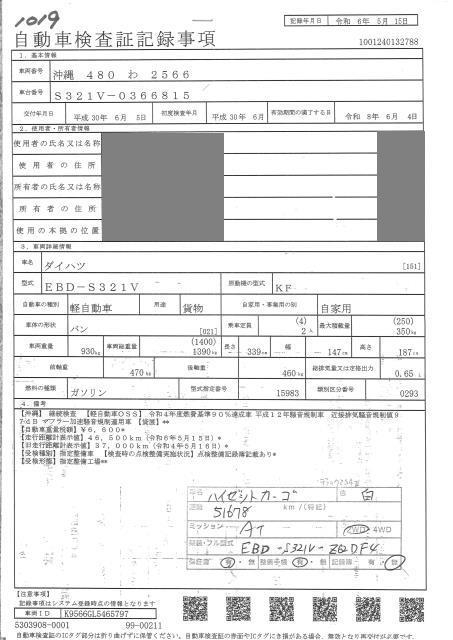 1019
記録年月日 令和 6年 5月 15日
自動車検査証記録事項
1001240132788
1. 基本情報
車両番号 沖縄 480 わ 2566
車台番号 S321V-0366815
交付年月日 平成 30年 6月 5日 初度検査年月 平成 30年 6月 有効期間の満了する日 令和 8年 6月 4日
2. 使用者・所有者情報
使用者の氏名又は名称
使用者の住所
所有者の氏名又は名称
所有者の住所
使用の本拠の位置
3. 車両詳細情報
車名 ダイハツ [151]
型式 EBD-S321V 原動機の型式 KF
自動車の種別 軽自動車 用途 貨物 自家用・事業用の別 自家用
車体の形状 バン [021] 乗車定員 (4) 2人 最大積載量 (250) 350kg
車両重量 930kg 車両総重量 (1400) 1390kg 長さ 339cm 幅 147cm 高さ 187cm
前軸重 470kg 後軸重 460kg 総排気量又は定格出力 0.65 L
燃料の種類 ガソリン 型式指定番号 15983 類別区分番号 0293
4. 備考
【沖縄】 継続検査 【軽自動車OSS】 令和4年度燃費基準90%達成車 平成12年騒音規制車 近接排気騒音規制値9
7dB マフラー加速騒音規制適用車 【貨渡】**
【自動車重量税額】¥6,600*
【走行距離計表示値】46,500km(令和6年5月15日)
【旧走行距離計表示値】37,000km(令和4年5月16日)*
【受検種別】指定整備車 【検査時の点検整備実施状況】点検整備記録簿記載あり*
【受検形態】指定整備工場**
車名 ハイゼットカーゴ 色 白
51678 km/(特記)
ミッション AT 2WD 4WD
型式・フル型式 EBD-S321V-ZBDF4
保証書 有・無 整備手帳 有・無 記録簿 有・無
【注意事項】
記録事項はシステム登録時点の情報となります
車両ID K9566GL5465797
5303908-0001 99-00211
自動車検査証のICタグ部分は折り曲げずに保管ください。自動車検査証の券面やICタグに合損がある場合、無効となり再交付が必要です。